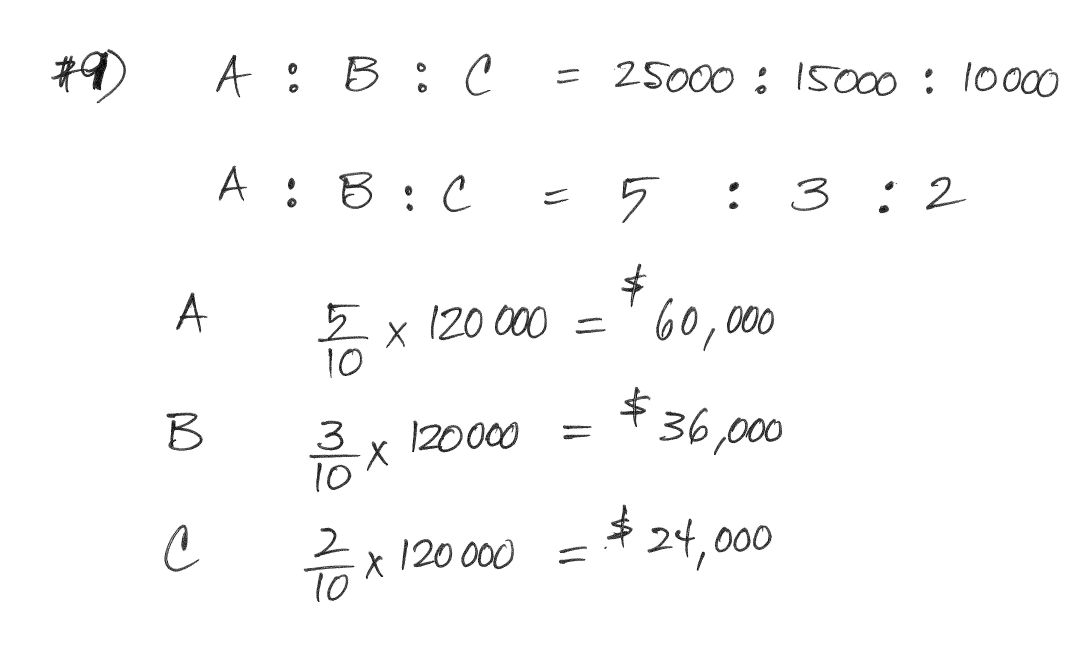 #9) A : B : C = 25000 : 15000 : 10000
A : B : C = 5 : 3 : 2
A 5/10 x 120 000 = $60,000
B 3/10 x 120000 = $36,000
C 2/10 x 120 000 = $24,000